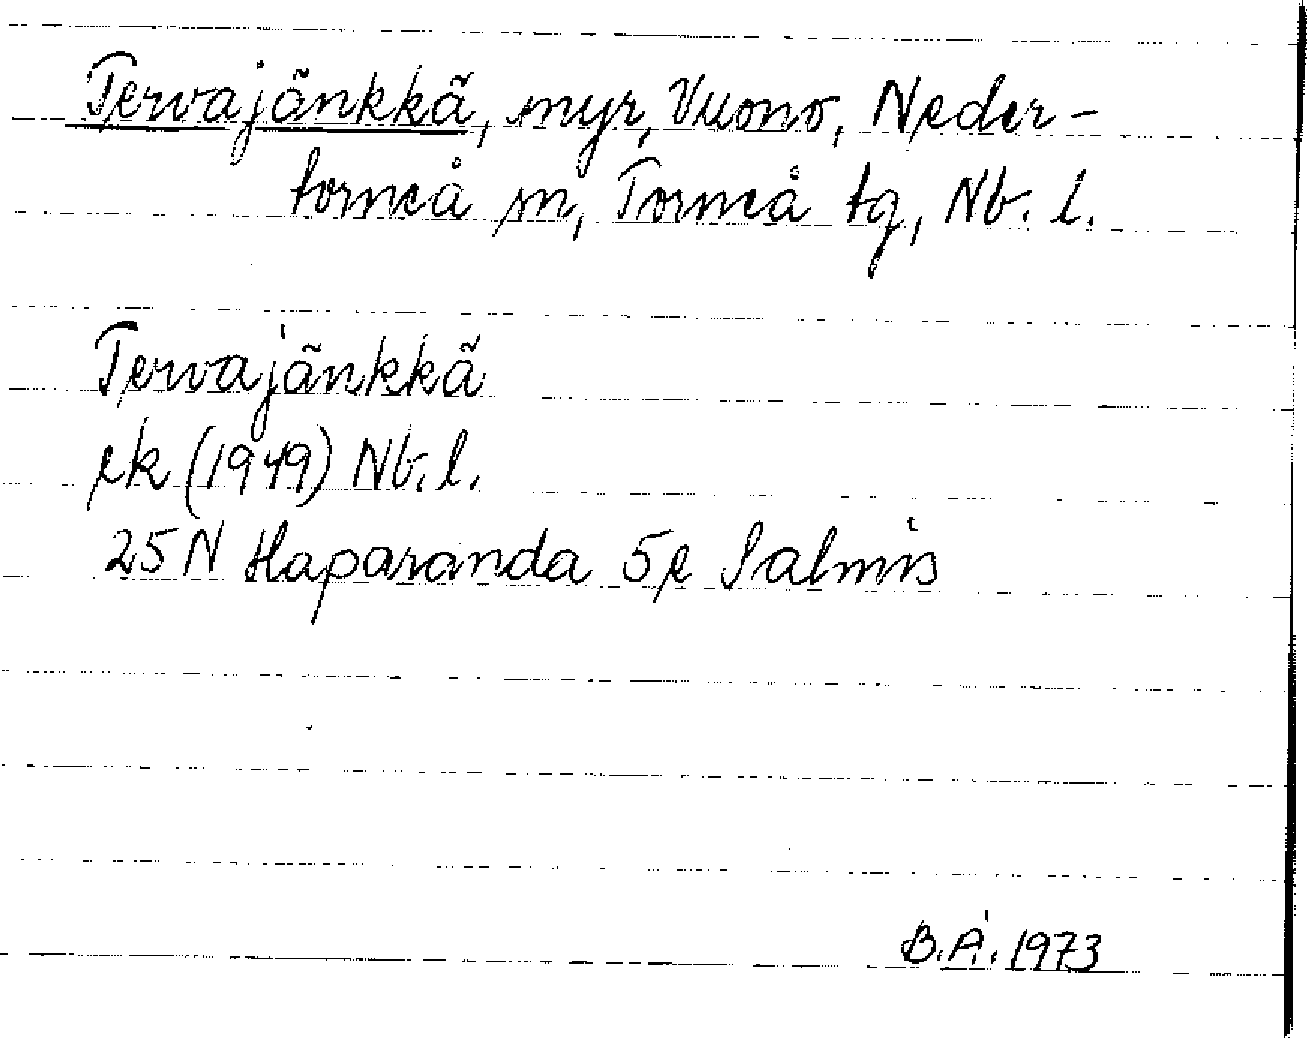 Tervajänkkä, myr, Vuono, Neder-
torneå sn, Torneå tg, Nb. l.
Tervajänkkä
ek (1949) Nb. l.
25 N Haparanda 5e Salmis
B.Å. 1973